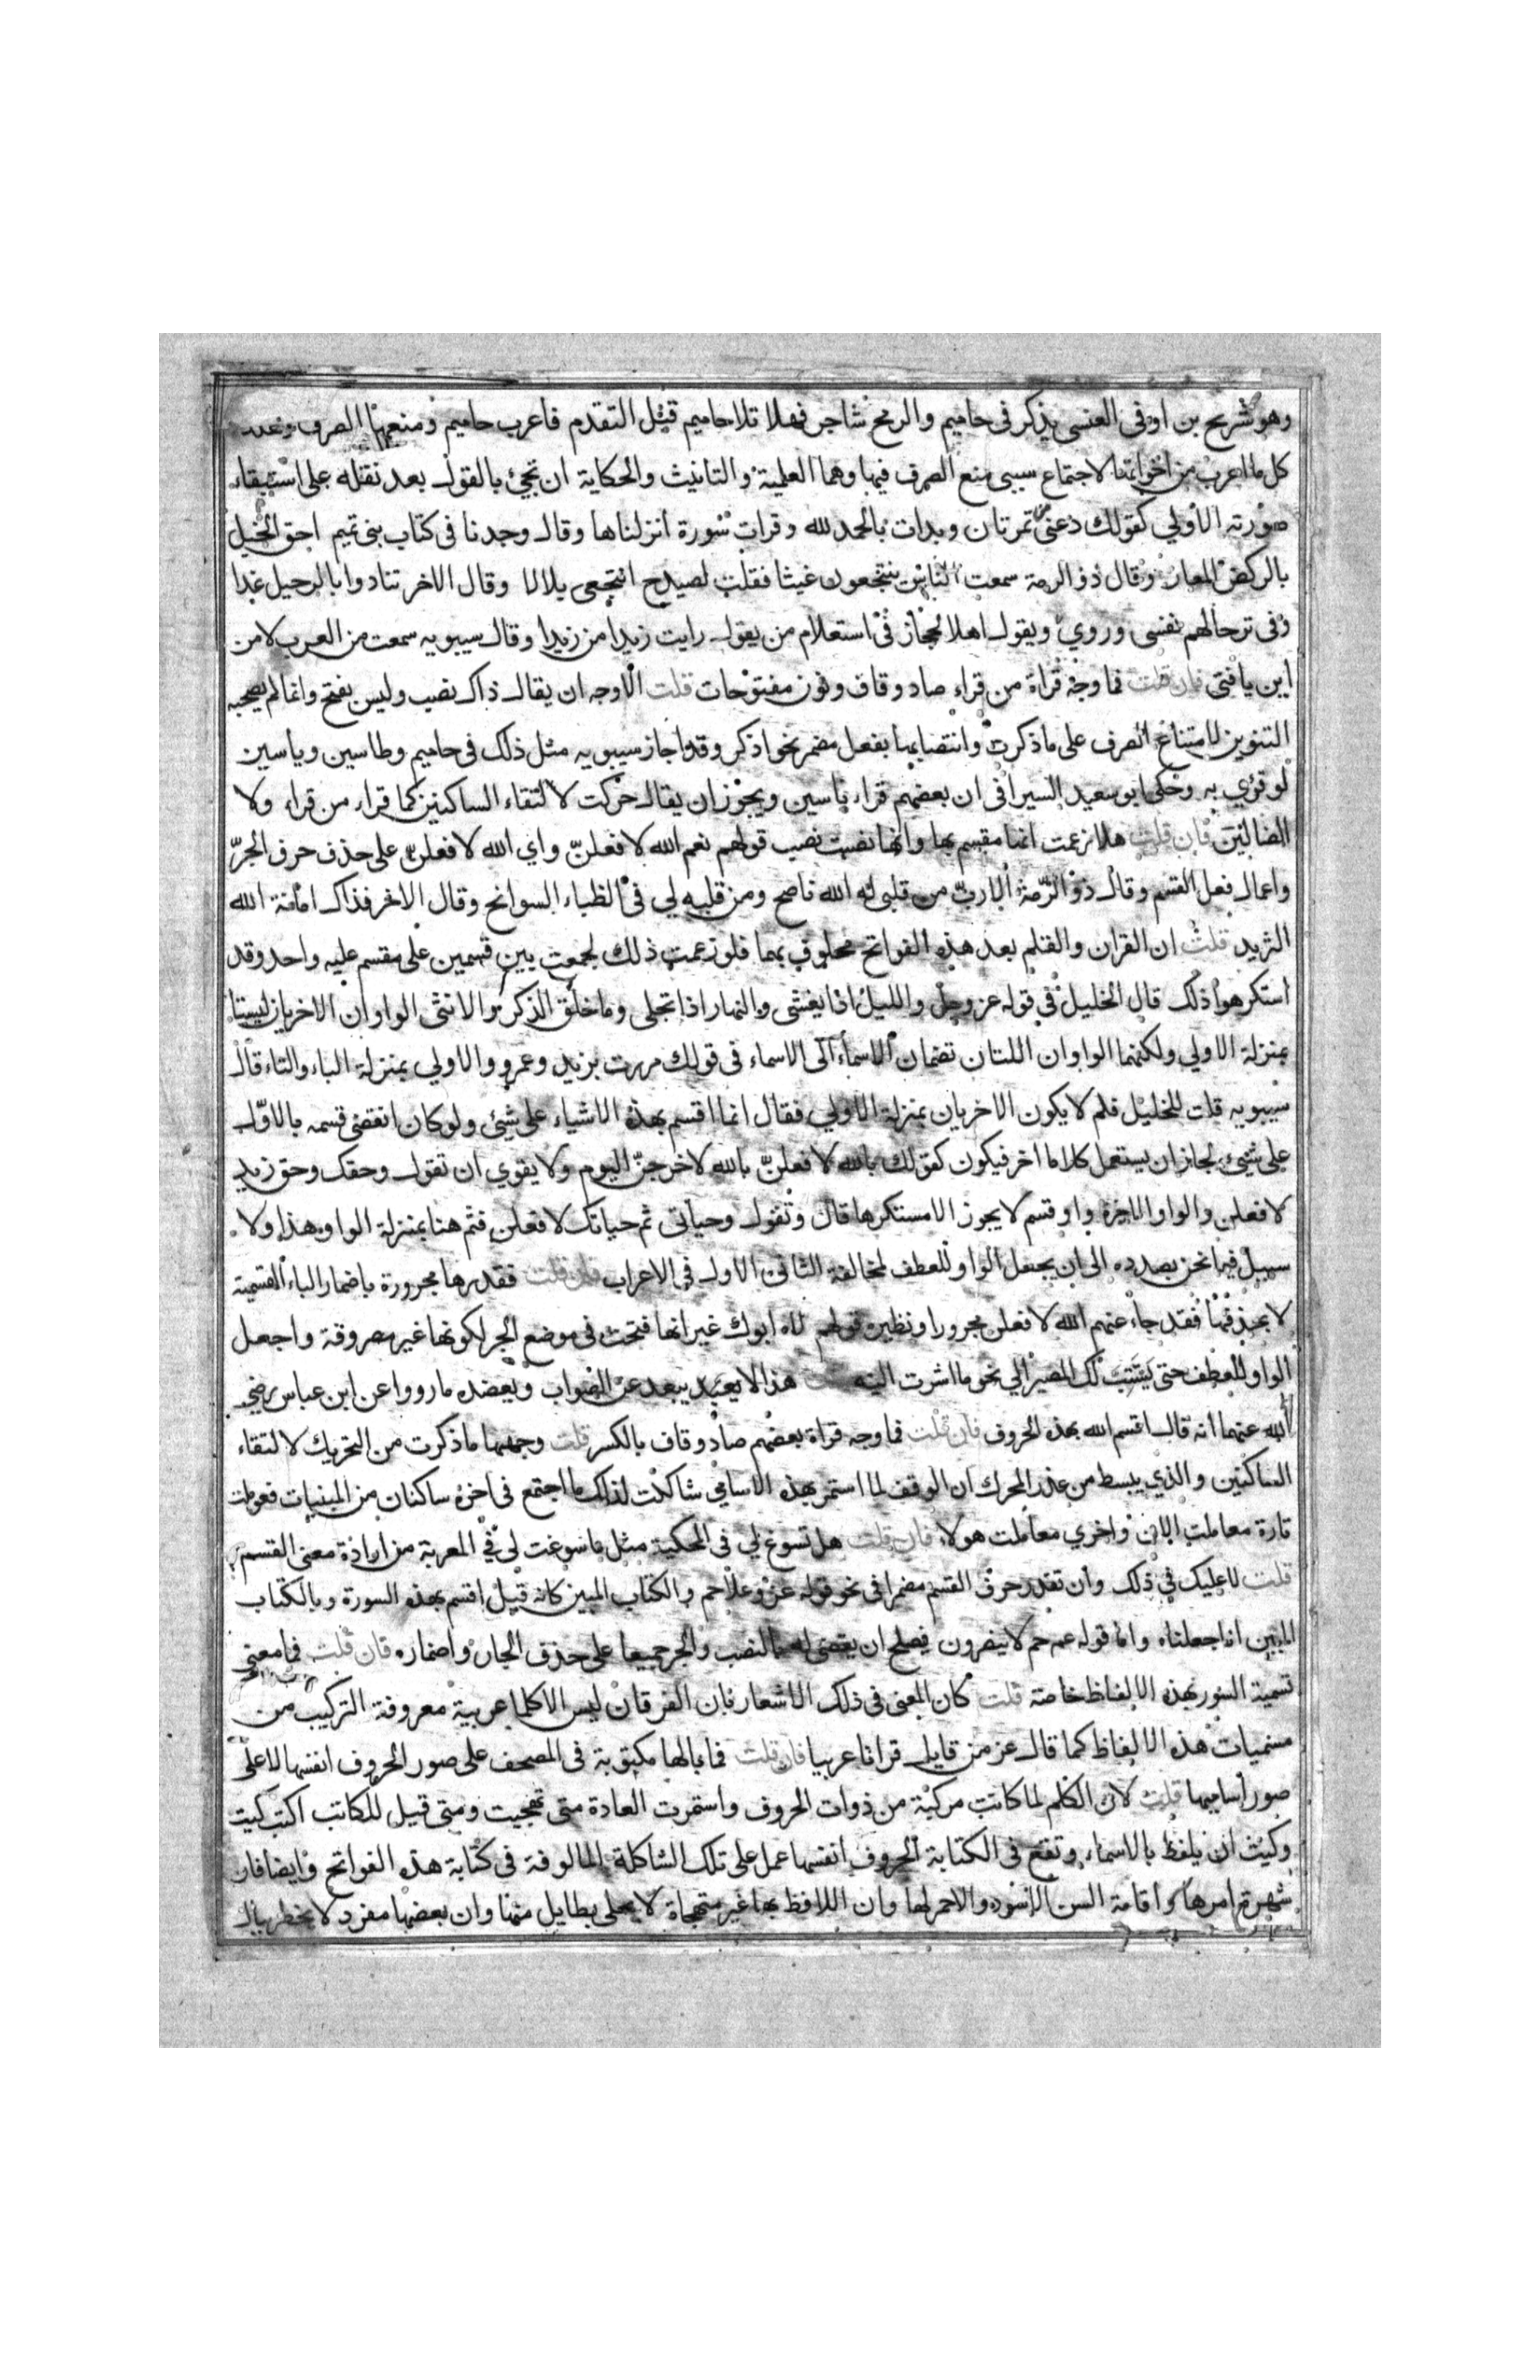 وهو شريح بن اوفى العنسى يذكرنى حاميم والرمح شاجر فهلا تلا حاميم قبل التقدم فاعرب حاميم ومنعها الصرف وهكذا
كل ما اعرب من اخواتها لاجتماع سببى منع الصرف فيها وهما العلمية والتانيث والحكاية ان تجئ بالقول بعد نقله على استبقاء
صورته الاولي كقولك دعنى من تمرتان وبدات بالحمد لله وقرات سورة انزلناها وقال وجدنا فى كتاب بنى تميم احق الخيل
بالركض المعار وقال ذو الرمة سمعت الناس ينتجعون غيثا فقلت لصيدح انتجعى بلالا وقال الاخر تنادوا بالرحيل غدا
وفى ترحالهم نفسى وروي ويقول اهل الحجاز فى استعلام من يقول رايت زيدا من زيدا وقال سيبويه سمعت من العرب لا من
اين يا فتى فان قلت فما وجه قراة من قراء صاد وقاف ونون مفتوحات قلت الاوجه ان يقال ذاك نصب وليس بفتح وانما لم يصحبه
التنوين لامتناع الصرف على ما ذكرت وانتصابها بفعل مضمر نحو اذكر وقد اجاز سيبويه مثل ذلك فى حاميم وطاسين وياسين
لو قرئ به وحكى ابو سعيد السيرافى ان بعضهم قراء ياسين ويجوز ان يقال حركت لالتقاء الساكنين كما قراء من قراء ولا
الضالين فان قلت هلا زعمت انها مقسم بها وانها نصبت نصب قولهم نعم الله لافعلنّ واي الله لافعلنّ على حذف حرف الجرّ
واعمال فعل القسم وقال ذو الرّمة ألا ربّ من قلبى له الله ناصح ومن قلبه لي فى الظباء السوانح وقال الاخر فذاك امانة الله
الثريد قلت ان القران والقلم بعد هذه الفواتح محلوف بهما فلو زعمت ذلك لجمعت بين قسمين على مقسم عليه واحد وقد
استكرهوا ذلك قال الخليل فى قوله عز وجل والليل اذا يغشى والنهار اذا تجلى وما خلق الذكر والانثى الواوان الاخريان ليستا
بمنزلة الاولي ولكنهما الواوان اللتان تضمان الاسماء الى الاسماء فى قولك مررت بزيد وعمرو والاولي بمنزلة الباء والتاء قال
سيبويه قلت للخليل فلم لا يكون الاخريان بمنزلة الاولي فقال انما اقسم بهذه الاشياء على شيئ ولو كان انقضى قسمه بالاوّل
على شيئ لجاز ان يستعمل كلاما اخر فيكون كقولك بالله لافعلنّ بالله لاخرجنّ اليوم ولا يقوي ان تقول وحقك وحق زيد
لافعلن والواو الاخرة واو قسم لا يجوز الا مستكرها قال وتقول وحياتى ثم حياتك لافعلن فثم هنا بمنزلة الواو هذا ولا
سبيل فيما نحن بصدده الى ان يجعل الواو للعطف لمخالفة الثانى الاول فى الاعراب فان قلت فقدرها مجرورة باضمار الباء القسمية
لا بحذفها فقد جاء عنهم الله لافعلن مجرورا ونظيره قولهم لاه ابوك غير انها فتحت فى موضع الجر لكونها غير مصروفة واجعل
الواو للعطف حتى يستتب لك المصير الي نحو ما اشرت اليه قلت هذا لا يعبد يبعد عن الصواب ويعضده ما رووا عن ابن عباس رضى
الله عنهما انه قال اقسم الله بهذه الحروف فان قلت فما وجه قراة بعضهم صاد وقاف بالكسر قلت وجهها ما ذكرت من التحريك لالتقاء
الساكنين والذي يبسط من عذر المحرك ان الوقف لما استمر بهذه الاسامي شاكلت لذلك ما اجتمع فى اخره ساكنان من المبنيات فعوملت
تارة معاملت الان واخري معاملت هولاء فان قلت هل تسوغ لي فى المحكية مثل ما سوغت لى فى المعربة من ارادة معنى القسم
قلت لا عليك فى ذلك وان تقدر حرف القسم مضمرا فى نحو قوله عز وعلا حم والكتاب المبين كانه قيل اقسم بهذه السورة وبالكتاب
المبين انا جعلناه واما قوله عم حم لا ينصرون فيصلح ان يقضى له بالنصب والجر جميعا على حذف الجار واضماره فان قلت فما معنى
تسمية السور بهذه الالفاظ خاصة قلت كان المعنى فى ذلك الاشعار بان الفرقان ليس الا كلما عربية معروفة التركيب من
مسميات هذه الالفاظ كما قال عز من قايل قرانا عربيا فان قلت فما بالها مكتوبة فى المصحف على صور الحروف انفسها لا على
صور اساميها قلت لان الكلم لما كانت مركبة من ذوات الحروف واستمرت العادة متى تهجيت ومتى قيل للكاتب اكتب كيت
وكيت ان يلفظ بالاسماء وتقع فى الكتابة الحروف انفسها عمل على تلك الشاكلة المالوفة فى كتابة هذه الفواتح وايضا فان
شهرة امرها واقامة السن الاسود والاحمر لها وان اللافظ بها غير متهجاة لا يحلى بطايل منها وان بعضها مفرد لا يخطر ببال